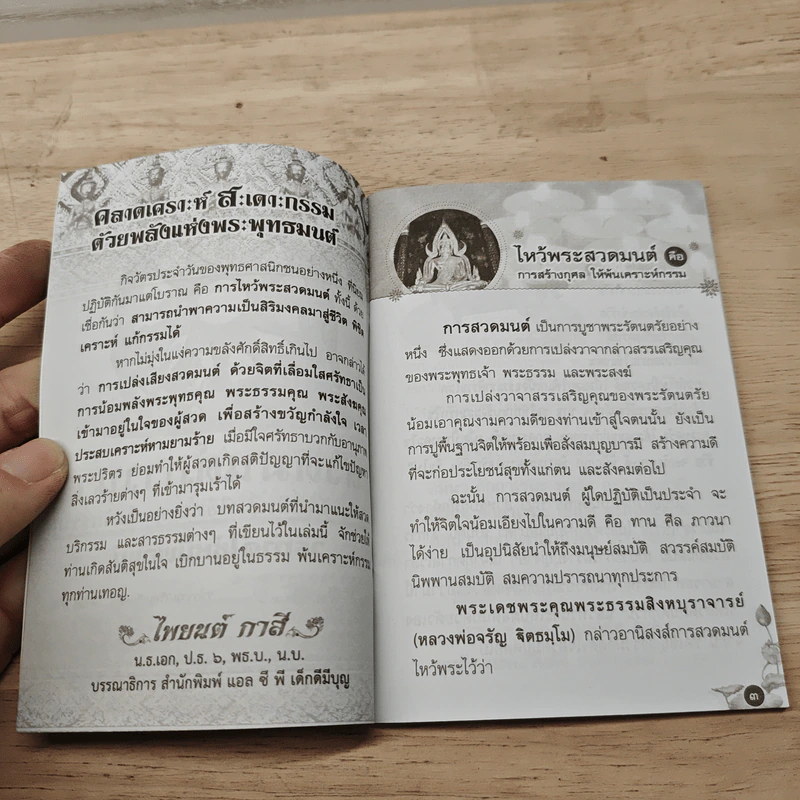 คลาดเคราะห์ สะเดาะกรรม
ด้วยพลังแห่งพระพุทธมนต์
กิจวัตรประจำวันของพุทธศาสนิกชนอย่างหนึ่ง ที่นิยม
ปฏิบัติกันมาแต่โบราณ คือ การไหว้พระสวดมนต์ ทั้งนี้ ด้วย
เชื่อกันว่า สามารถนำพาความเป็นสิริมงคลมาสู่ชีวิต พิชิต
เคราะห์ แก้กรรมได้
หากไม่มุ่งในแง่ความขลังศักดิ์สิทธิ์เกินไป อาจกล่าวได้
ว่า การเปล่งเสียงสวดมนต์ ด้วยจิตที่เลื่อมใสศรัทธาเป็น
การน้อมพลังพระพุทธคุณ พระธรรมคุณ พระสังฆคุณ
เข้ามาอยู่ในใจของผู้สวด เพื่อสร้างขวัญกำลังใจ เวลา
ประสบเคราะห์หามยามร้าย เมื่อมีใจศรัทธาบวกกับอานุภาพ
พระปริตร ย่อมทำให้ผู้สวดเกิดสติปัญญาที่จะแก้ไขปัญหา
สิ่งเลวร้ายต่างๆ ที่เข้ามารุมเร้าได้
หวังเป็นอย่างยิ่งว่า บทสวดมนต์ที่นำมาแนะให้สวด
บริกรรม และสารธรรมต่างๆ ที่เขียนไว้ในเล่มนี้ จักช่วยให้
ท่านเกิดสันติสุขในใจ เบิกบานอยู่ในธรรม พ้นเคราะห์กรรม
ทุกท่านเทอญ.
ไพยนต์ กาสี
น.ธ.เอก, ป.ธ. ๖, พธ.บ., น.บ.
บรรณาธิการ สำนักพิมพ์ แอล ซี พี เด็กดีมีบุญ
ไหว้พระสวดมนต์ คือ
การสร้างกุศล ให้พ้นเคราะห์กรรม
การสวดมนต์ เป็นการบูชาพระรัตนตรัยอย่าง
หนึ่ง ซึ่งแสดงออกด้วยการเปล่งวาจากล่าวสรรเสริญคุณ
ของพระพุทธเจ้า พระธรรม และพระสงฆ์
การเปล่งวาจาสรรเสริญคุณของพระรัตนตรัย
น้อมเอาคุณงามความดีของท่านเข้าสู่ใจตนนั้น ยังเป็น
การปูพื้นฐานจิตให้พร้อมเพื่อสั่งสมบุญบารมี สร้างความดี
ที่จะก่อประโยชน์สุขทั้งแก่ตน และสังคมต่อไป
ฉะนั้น การสวดมนต์ ผู้ใดปฏิบัติเป็นประจำ จะ
ทำให้จิตใจน้อมเอียงไปในความดี คือ ทาน ศีล ภาวนา
ได้ง่าย เป็นอุปนิสัยนำให้ถึงมนุษย์สมบัติ สวรรค์สมบัติ
นิพพานสมบัติ สมความปรารถนาทุกประการ
พระเดชพระคุณพระธรรมสิงหบุราจารย์
(หลวงพ่อจรัญ ฐิตธมฺโม) กล่าวอานิสงส์การสวดมนต์
ไหว้พระไว้ว่า
๓